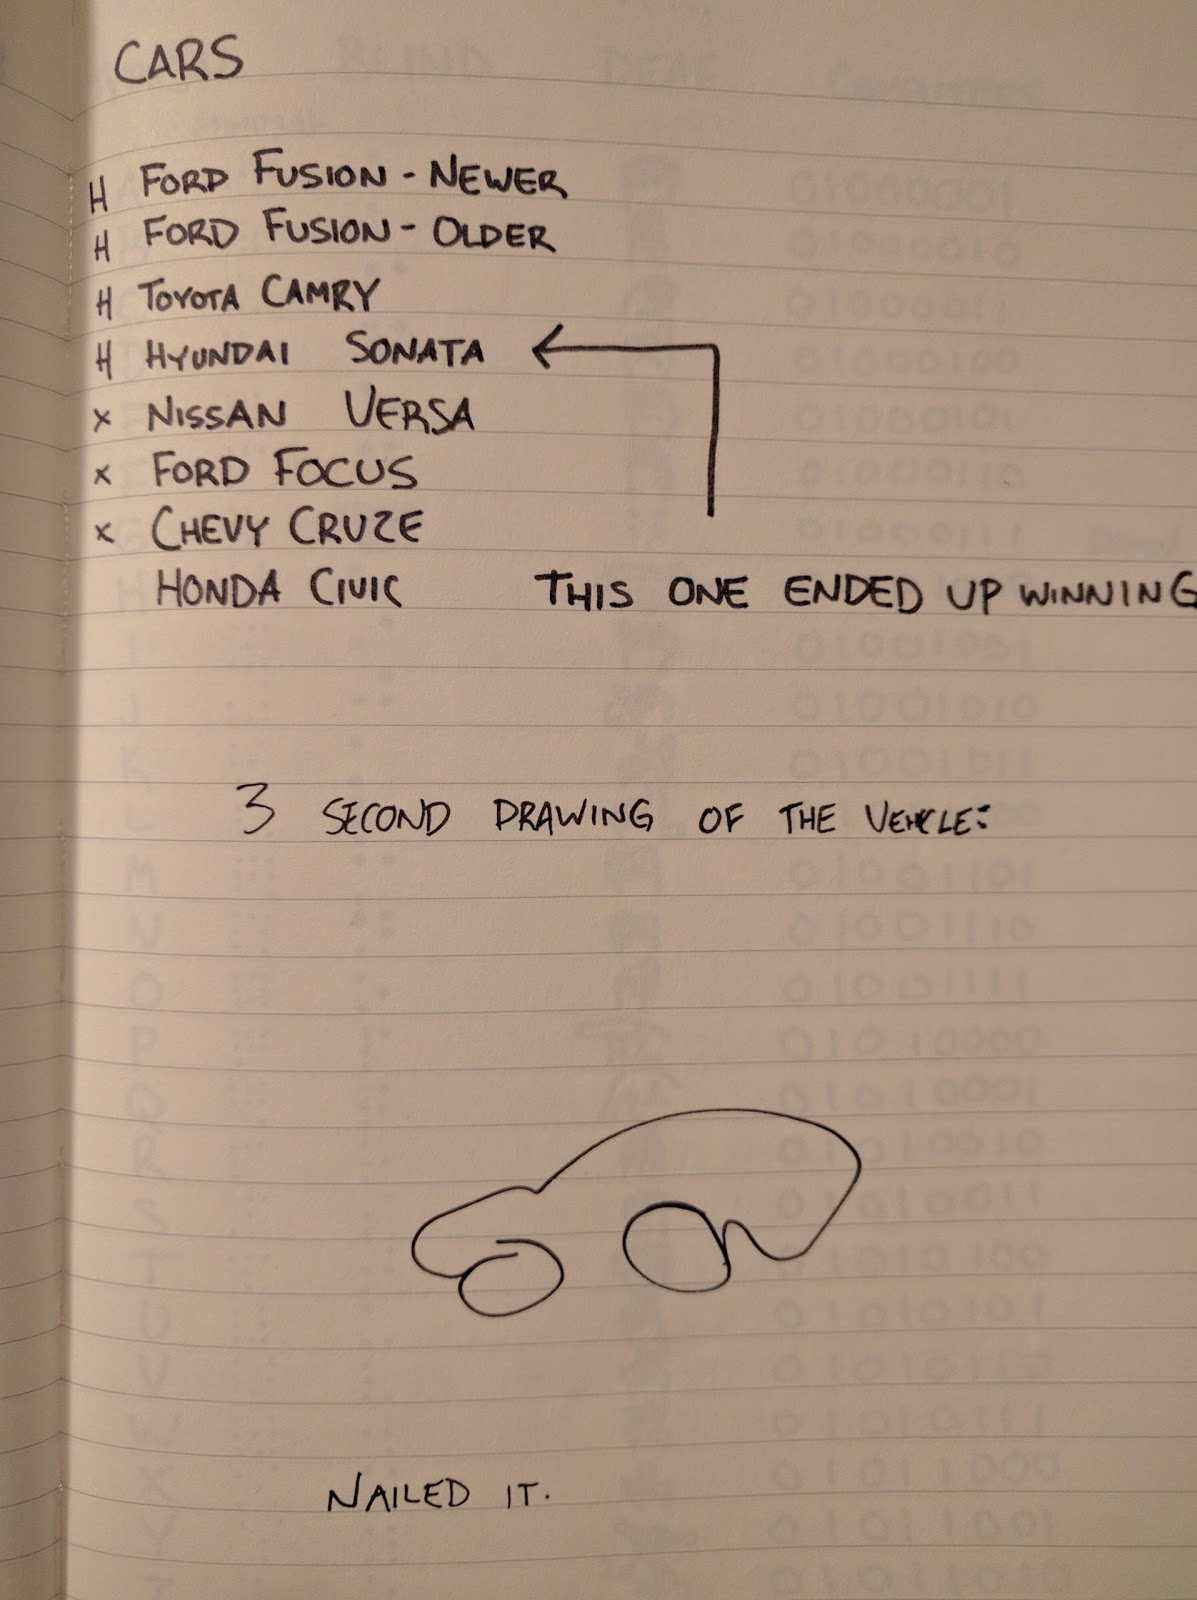 CARS
H FORD FUSION - NEWER
H FORD FUSION - OLDER
H TOYOTA CAMRY
H HYUNDAI SONATA
x NISSAN VERSA
x FORD FOCUS
x CHEVY CRUZE
HONDA CIVIC THIS ONE ENDED UP WINNING
3 SECOND DRAWING OF THE VEHICLE:
NAILED IT.